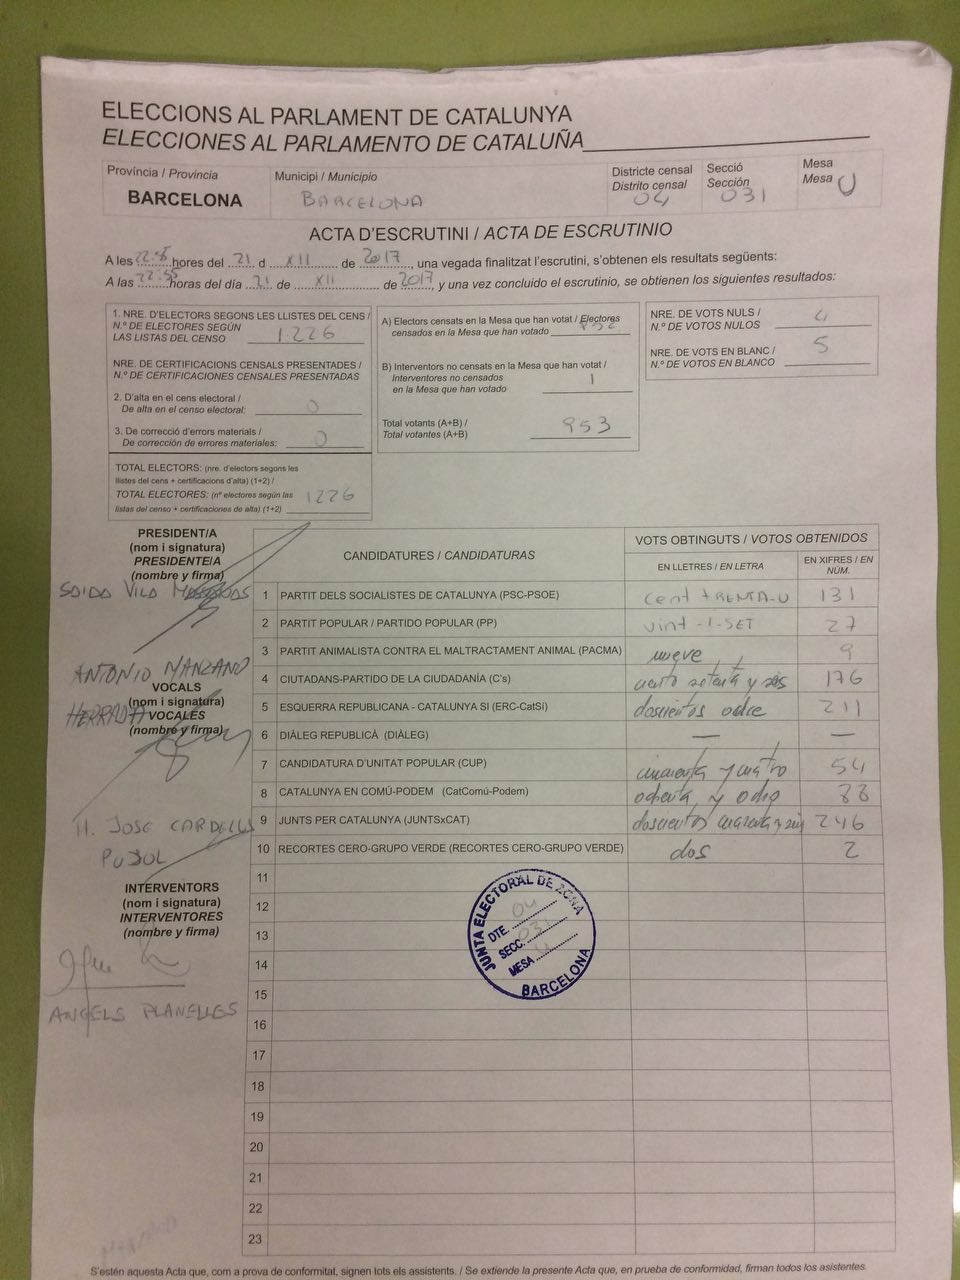 ELECCIONS AL PARLAMENT DE CATALUNYA
ELECCIONES AL PARLAMENTO DE CATALUÑA
Província / Provincia
BARCELONA
Municipi / Municipio
BARCELONA
Districte censal
Distrito censal
04
Secció
Sección
031
Mesa
Mesa U
ACTA D'ESCRUTINI / ACTA DE ESCRUTINIO
A les 22.55 hores del 21 d XII de 2017, una vegada finalitzat l'escrutini, s'obtenen els resultats següents:
A las 22:55 horas del día 21 de XII de 2017, y una vez concluido el escrutinio, se obtienen los siguientes resultados:
1. NRE. D'ELECTORS SEGONS LES LLISTES DEL CENS /
N.º DE ELECTORES SEGÚN
LAS LISTAS DEL CENSO 1.226
NRE. DE CERTIFICACIONS CENSALS PRESENTADES /
N.º DE CERTIFICACIONES CENSALES PRESENTADAS
2. D'alta en el cens electoral /
De alta en el censo electoral: 0
3. De correcció d'errors materials /
De corrección de errores materiales: 0
TOTAL ELECTORS: (nre. d'electors segons les
llistes del cens + certificacions d'alta) (1+2) /
TOTAL ELECTORES: (nº electores según las
listas del censo + certificaciones de alta) (1+2) 1226
A) Electors censats en la Mesa que han votat / Electores
censados en la Mesa que han votado 952
B) Interventors no censats en la Mesa que han votat /
Interventores no censados
en la Mesa que han votado 1
Total votants (A+B) /
Total votantes (A+B) 953
NRE. DE VOTS NULS /
N.º DE VOTOS NULOS 4
NRE. DE VOTS EN BLANC /
N.º DE VOTOS EN BLANCO 5
PRESIDENT/A
(nom i signatura)
PRESIDENTE/A
(nombre y firma)
ANTONIO MANZANO
VOCALS
(nom i signatura)
VOCALES
(nombre y firma)
JOSE CARDELLS
PUJOL
INTERVENTORS
(nom i signatura)
INTERVENTORES
(nombre y firma)
ANGELS PLANELLES
CANDIDATURES / CANDIDATURAS
VOTS OBTINGUTS / VOTOS OBTENIDOS
EN LLETRES / EN LETRA
EN XIFRES / EN NÚM.
1 PARTIT DELS SOCIALISTES DE CATALUNYA (PSC-PSOE) cent TRENTA-U 131
2 PARTIT POPULAR / PARTIDO POPULAR (PP) vint-i-SET 27
3 PARTIT ANIMALISTA CONTRA EL MALTRACTAMENT ANIMAL (PACMA) nueve 9
4 CIUTADANS-PARTIDO DE LA CIUDADANÍA (C's) ciento setenta y seis 176
5 ESQUERRA REPUBLICANA - CATALUNYA SI (ERC-CatSí) doscientos once 211
6 DIÀLEG REPUBLICÀ (DIÀLEG) — —
7 CANDIDATURA D'UNITAT POPULAR (CUP) cincuenta y cuatro 54
8 CATALUNYA EN COMÚ-PODEM (CatComú-Podem) ochenta y ocho 88
9 JUNTS PER CATALUNYA (JUNTSxCAT) doscientos cuarenta y seis 246
10 RECORTES CERO-GRUPO VERDE (RECORTES CERO-GRUPO VERDE) dos 2
11
12
13
14
15
16
17
18
19
20
21
22
23
JUNTA ELECTORAL DE ZONA
DTE. 04
SECC. 031
MESA U
BARCELONA
S'estén aquesta Acta que, com a prova de conformitat, signen tots els assistents. / Se extiende la presente Acta que, en prueba de conformidad, firman todos los asistentes.